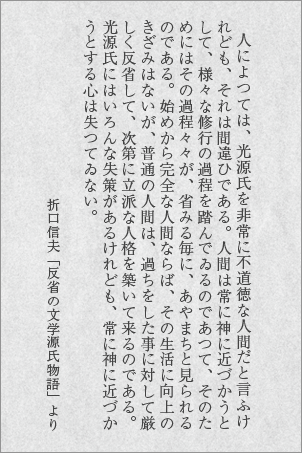 人によつては、光源氏を非常に不道徳な人間だと言ふけ
れども、それは間違ひである。人間は常に神に近づかうと
して、様々な修行の過程を踏んでゐるのであつて、そのた
めにはその過程々々が、省みる毎に、あやまちと見られる
のである。始めから完全な人間ならば、その生活に向上の
きざみはないが、普通の人間は、過ちをした事に対して厳
しく反省して、次第に立派な人格を築いて来るのである。
光源氏にはいろんな失策があるけれども、常に神に近づか
うとする心は失つてゐない。
折口信夫「反省の文学源氏物語」より